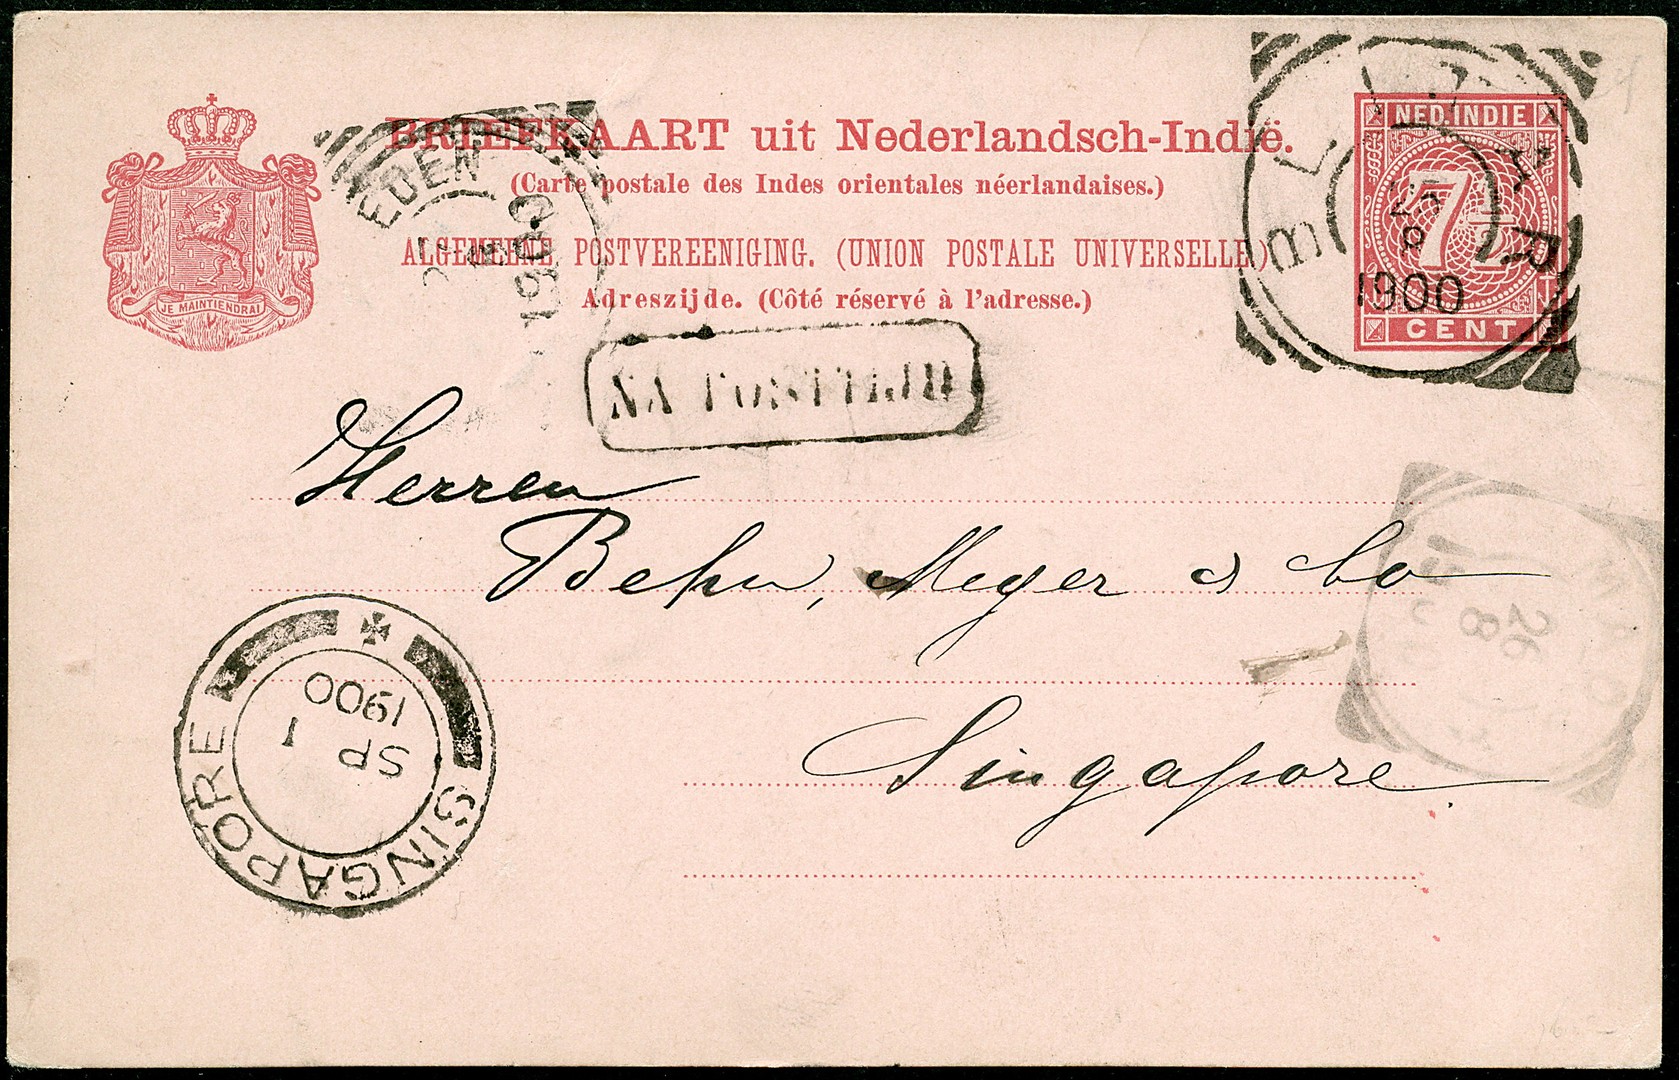 BRIEFKAART uit Nederlandsch-Indië.
(Carte postale des Indes orientales néerlandaises.)
ALGEMEENE POSTVEREENIGING. (UNION POSTALE UNIVERSELLE)
Adreszijde. (Côté réservé à l'adresse.)
JE MAINTIENDRAI
NED. INDIE
7½
CENT
BLITAR
1900
NA POSTTIJD
Herren
Behn, Meyer & Co
Singapore.
SINGAPORE
SP 1
1900
26
8